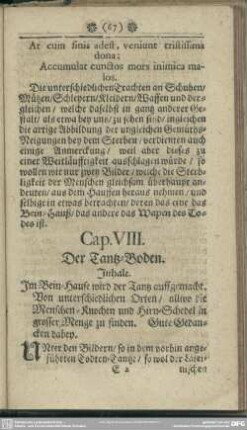 (67)
At cum finis adest, veniunt tristissima
dona:
Accumulat cunctos mors inimica ma-
los.
Die unterschiedlichen Trachten an Schuhen/
Mützen/Schleyern/Kleidern/Waffen und der-
gleichen/ welche daselbst in gantz anderer Ge-
stalt/ als etwa bey uns/ zu sehen sind/ ingleichen
die artige Abbildung der ungleichen Gemüths-
Neigungen bey dem Sterben/ verdienten auch
einige Anmerckung/ weil aber dieses zu
einer Weitläufftigkeit ausschlagen würde/ so
wollen wir nur zwey Bilder/ welche die Sterb-
ligkeit der Menschen gleichsam überhaupt an-
deuten/ aus dem Hauffen heraus nehmen/ und
selbige in etwas betrachten/ deren das eine das
Bein-Hauß/ das andere das Wapen des To-
des ist.
Cap. VIII.
Der Tantz-Boden.
Inhalt.
Im Bein-Hause wird der Tantz auffgemacht.
Von unterschiedlichen Orten/ allwo die
Menschen-Knochen und Hirn-Schedel in
grosser Menge zu finden. Gute Gedan-
cken dabey.
UNter den Bildern/ so in dem vorhin ange-
führten Todten-Tantze/ so wol der
E 2